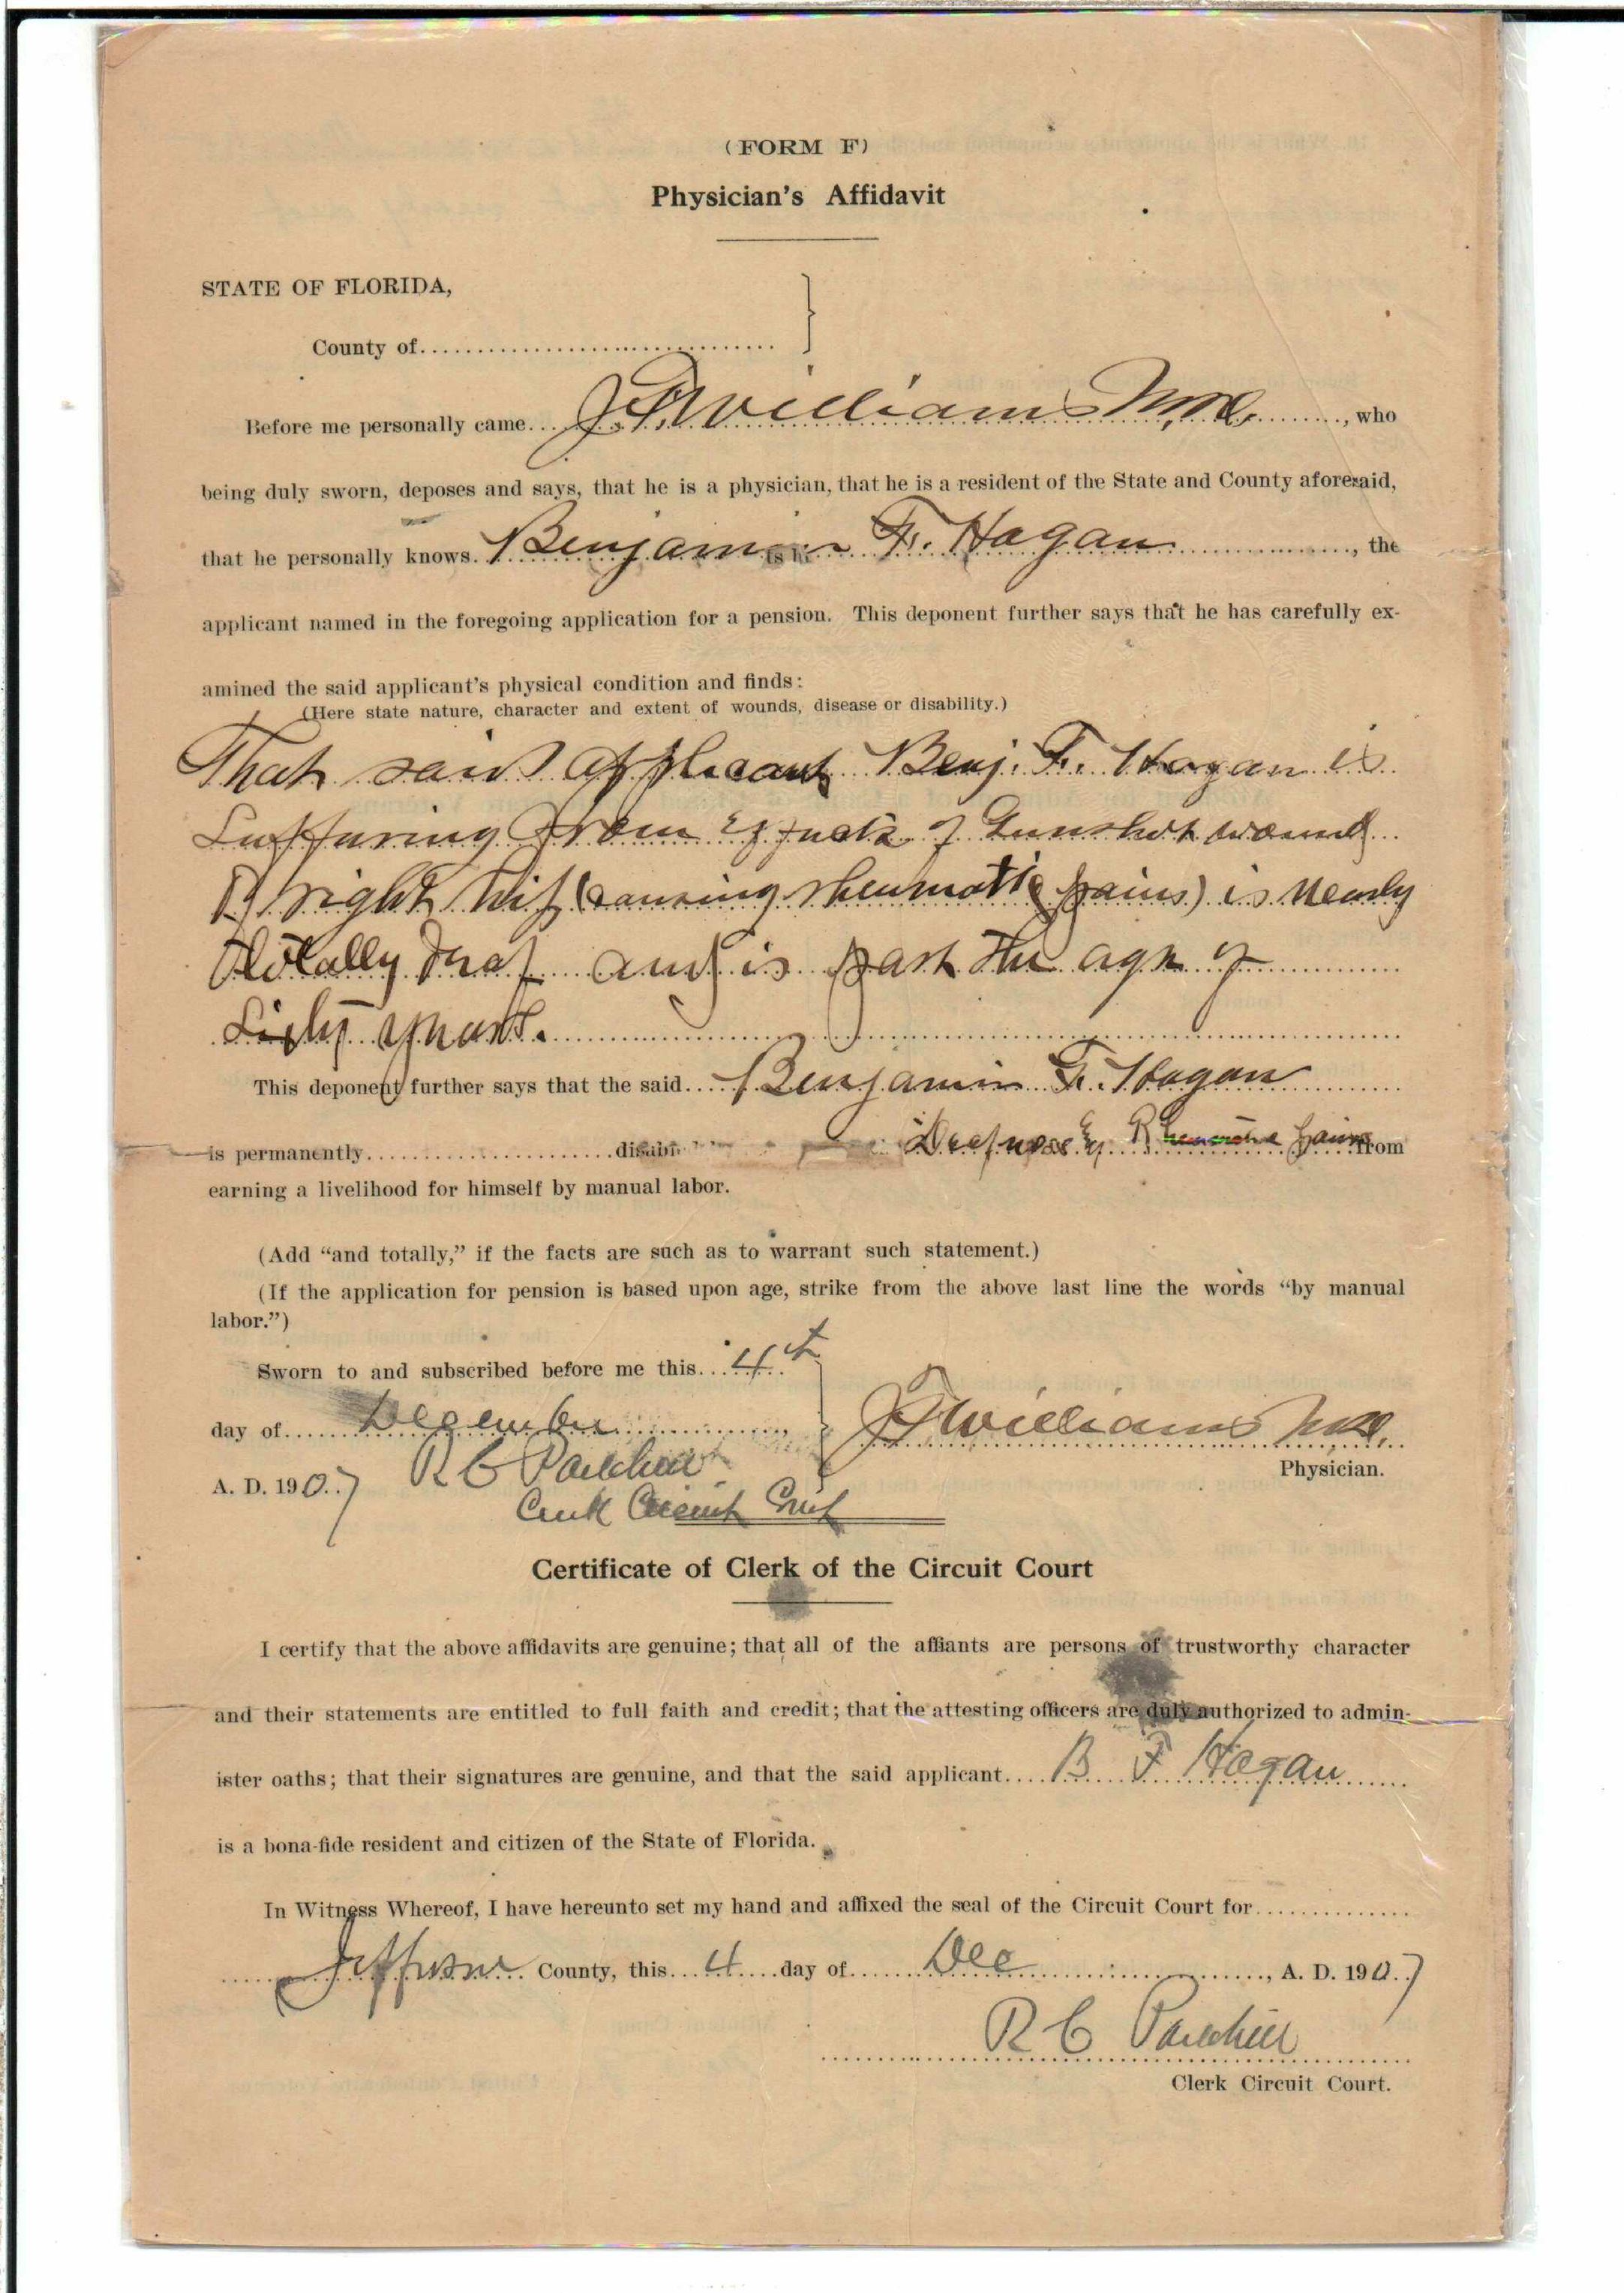 (FORM F)
Physician's Affidavit
STATE OF FLORIDA,
County of
Before me personally came J. Williams M.D., who
being duly sworn, deposes and says, that he is a physician, that he is a resident of the State and County aforesaid,
that he personally knows Benjamin F. Hagan, the
applicant named in the foregoing application for a pension. This deponent further says that he has carefully ex-
amined the said applicant's physical condition and finds:
(Here state nature, character and extent of wounds, disease or disability.)
That said applicant Benj. F. Hagan is
Suffering from effects of Gunshot wound
of right hip (causing rheumatic pains) is nearly
totally deaf and is past the age of
Sixty years.
This deponent further says that the said Benjamin F. Hagan
is permanently disab Deafness & Rheumatic pains from
earning a livelihood for himself by manual labor.
(Add "and totally," if the facts are such as to warrant such statement.)
(If the application for pension is based upon age, strike from the above last line the words "by manual
labor.")
Sworn to and subscribed before me this 4th
day of December
J Williams M.D.
Physician.
A. D. 1907 R C Parkhill
Clerk Circuit Court
Certificate of Clerk of the Circuit Court
I certify that the above affidavits are genuine; that all of the affiants are persons of trustworthy character
and their statements are entitled to full faith and credit; that the attesting officers are duly authorized to admin-
ister oaths; that their signatures are genuine, and that the said applicant B F Hagan
is a bona-fide resident and citizen of the State of Florida.
In Witness Whereof, I have hereunto set my hand and affixed the seal of the Circuit Court for
Jefferson County, this 4 day of Dec, A. D. 1907
R C Parkhill
Clerk Circuit Court.